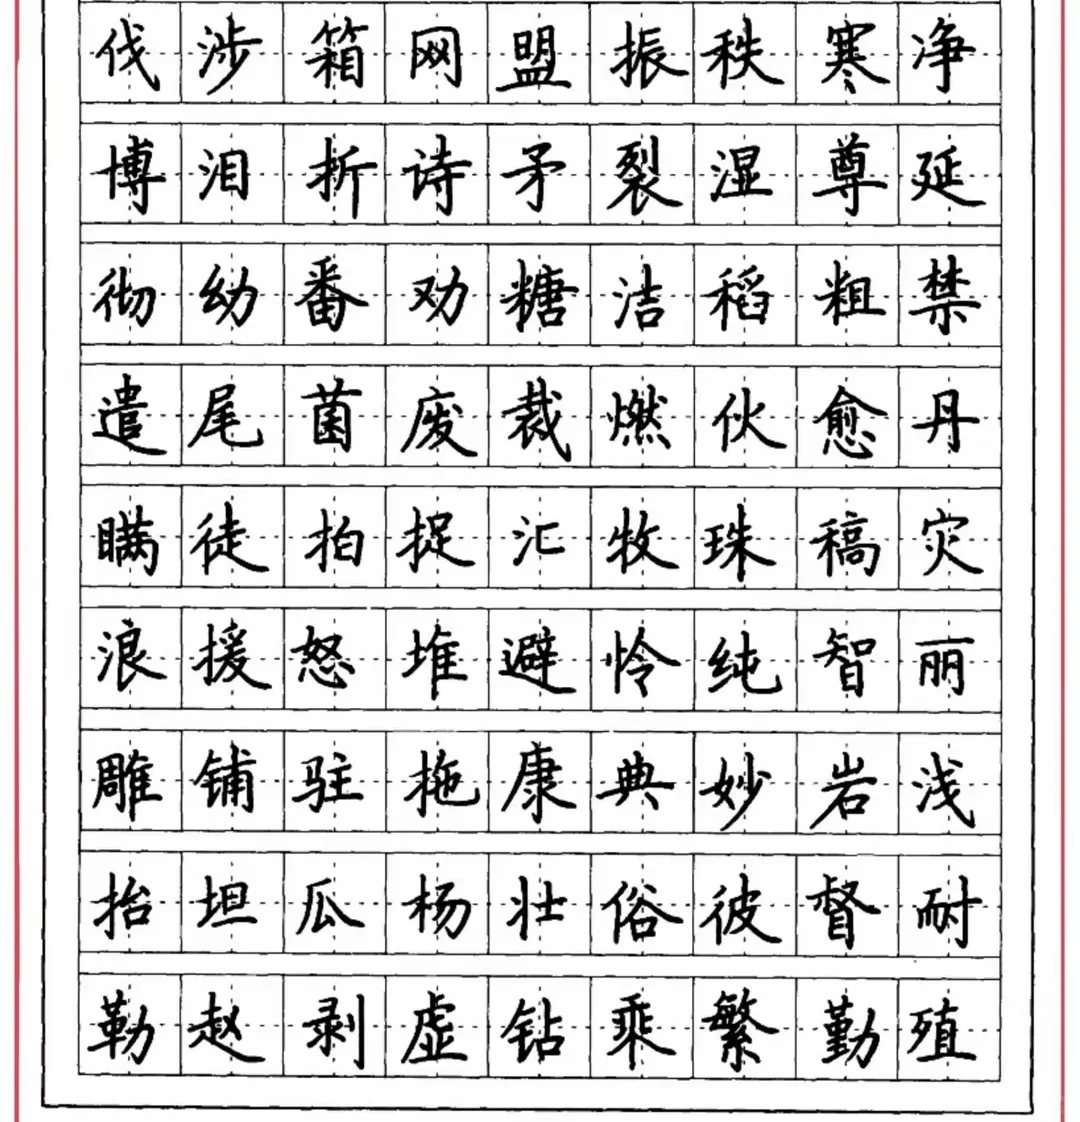 伐涉箱网盟振秩寒净
博泪折诗矛裂湿尊延
彻幼番劝糖洁稻粗禁
遣尾菌废裁燃伙愈丹
瞒徒拍捉汇牧珠稿灾
浪援怒堆避怜纯智丽
雕铺驻拖康典妙岩浅
抬坦瓜杨壮俗彼督耐
勒赵剥虚钻乘繁勤殖